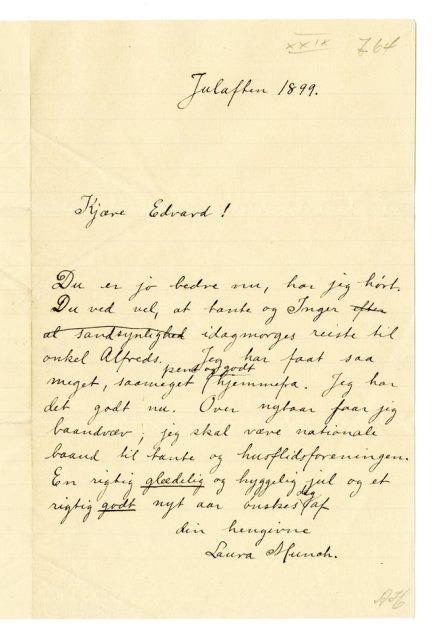 XXIX 764
Julaften 1899.
Kjære Edvard!
Du er jo bedre nu, har jeg hört.
Du ved vel, at tante og Inger efter
al sandsynlighed idagmorges reiste til
onkel Alfreds. Jeg har faat saa
pent og godt
meget, saameget hjemmefa. Jeg har
det godt nu. Over nytaar faar jeg
baandvæv; jeg skal væve nationale
baand til tante og husflidsforeningen.
En rigtig glædelig og hyggelig jul og et
dig
rigtig godt nyt aar önskes af
din hengivne
Laura Munch.